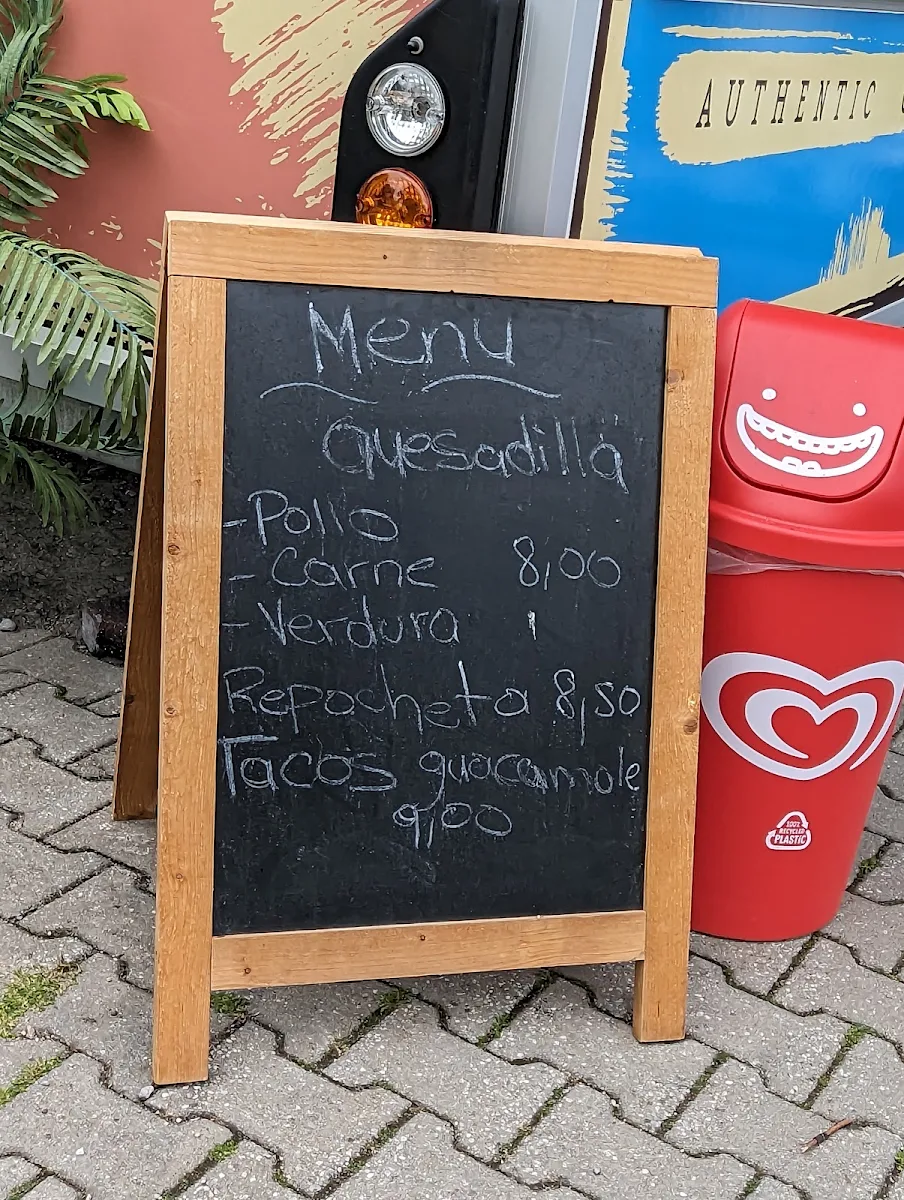 AUTHENTIC
Menu
Quesadilla
- Pollo
- Carne 8,00
- Verdura
Repocheta 8,50
Tacos guacamole
9,00
100%
RECYCLED
PLASTIC